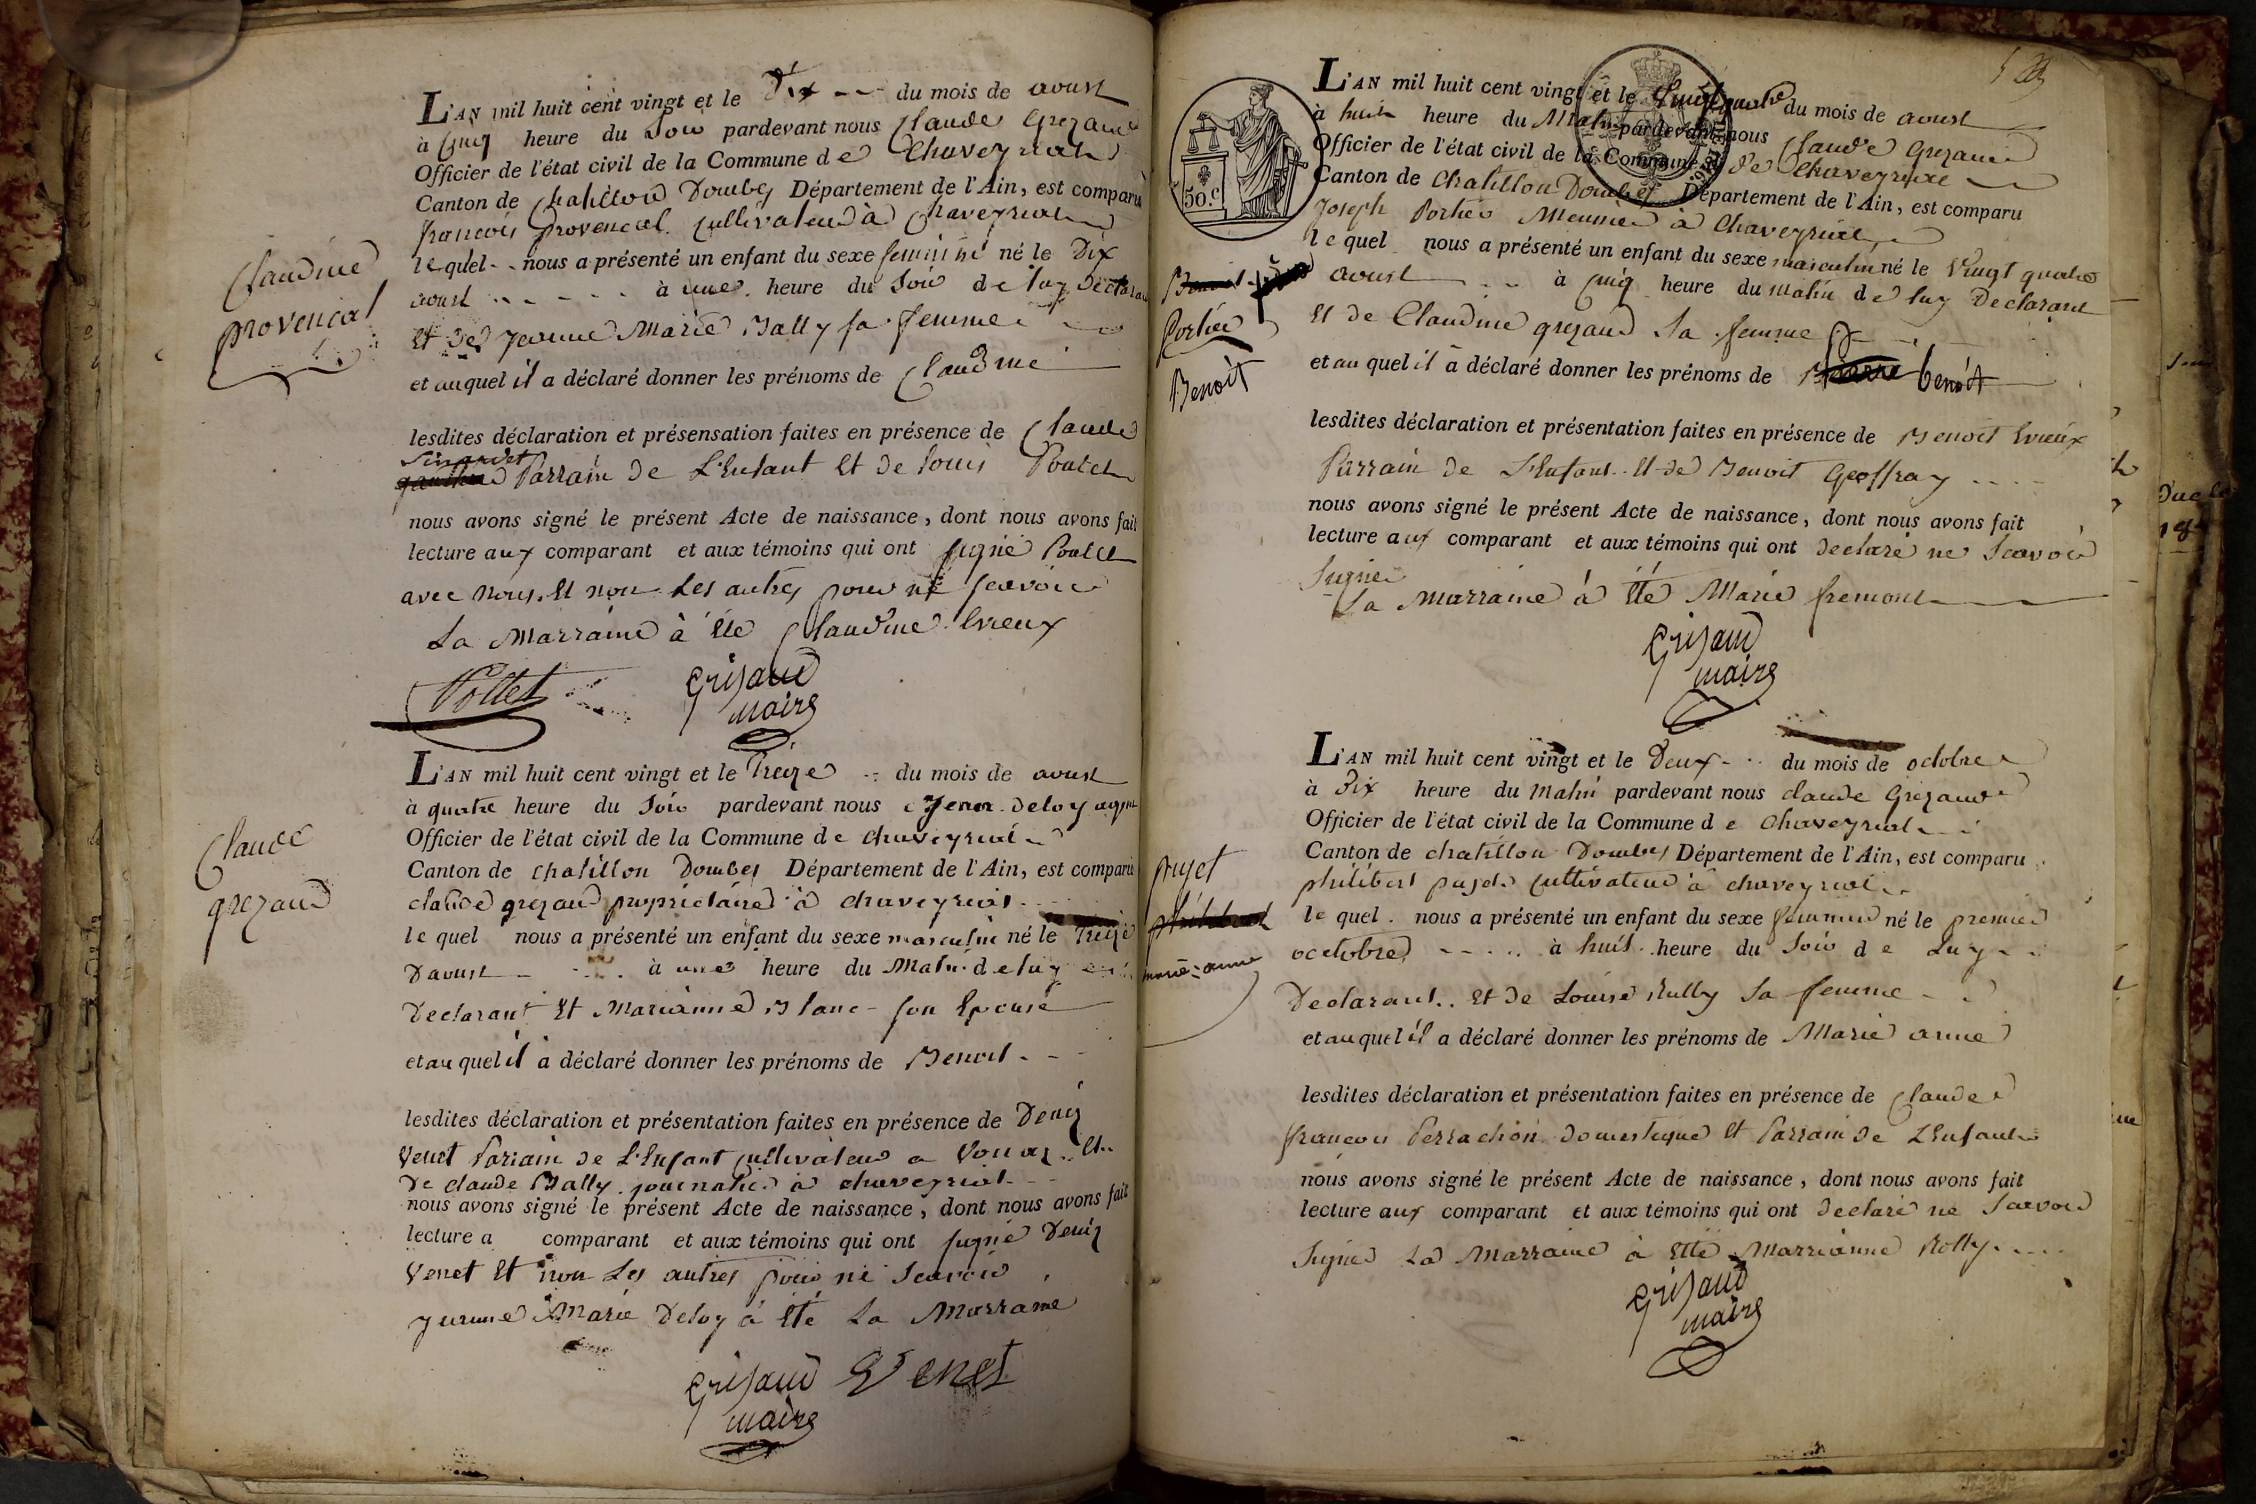 Claudine
provencal
L'AN mil huit cent vingt et le Dix du mois de aoust
à Cinq heure du Soir pardevant nous Claude Grezaud
Officier de l'état civil de la Commune de Chaveyriat
Canton de Chatillon Dombes Département de l'Ain, est comparu
francois provencal cultivateur à Chaveyriat
lequel nous a présenté un enfant du sexe feminin né le Dix
aoust à une heure du Soir de luy Déclarant
Et de Jeanne Marie Bally sa femme
et auquel il a déclaré donner les prénoms de Claudine
lesdites déclaration et présensation faites en présence de Claude
Parrain de L'Enfant Et de Louis Poulet
nous avons signé le présent Acte de naissance, dont nous avons fait
lecture aux comparant et aux témoins qui ont signé Poulet
avec nous, Et non Les autres pour ne scavoir
La Marraine à Eté Claudine Evieux
Pollet Grisaud
maire
Claude
grezaud
L'AN mil huit cent vingt et le Treize du mois de aoust
à quatre heure du Soir pardevant nous Jean deloy
Officier de l'état civil de la Commune de chaveyriat
Canton de chatillon Dombes Département de l'Ain, est comparu
claude grezaud propriétaire à chaveyriat
lequel nous a présenté un enfant du sexe masculin né le Treize
Daoust à une heure du Matin de luy
Declarant Et Marianne Blanc son Epouse
et auquel il à déclaré donner les prénoms de Benoit
lesdites déclaration et présentation faites en présence de Deniz
Venet Parrain de L'Enfant cultivateur a Vonnas Et
De claude Bally journalier à chaveyriat
nous avons signé le présent Acte de naissance, dont nous avons fait
lecture a comparant et aux témoins qui ont signé Deniz
Venet Et non Les autres pour ne scavoir
jeanne Marie Deloy à Eté La Marraine
Grisaud Venet
maire
50.c
L'AN mil huit cent vingt et le Vingt quatre du mois de aoust
à huit heure du Matin pardevant nous Claude Grezaud
Officier de l'état civil de la Commune de Chaveyriat
Canton de Chatillon Dombes Département de l'Ain, est comparu
Joseph Portier Meunier à Chaveyriat
lequel nous a présenté un enfant du sexe masculin né le Vingt quatre
aoust à Cinq heure du matin de luy Declarant
Et de Claudine grezaud Sa femme
et auquel il à déclaré donner les prénoms de benoit
Portier
Benoit
lesdites déclaration et présentation faites en présence de Benoit Evieux
Parrain de L'Enfant Et de Benoit Geoffray
nous avons signé le présent Acte de naissance, dont nous avons fait
lecture aux comparant et aux témoins qui ont declaré ne Scavoir
Signer
La Marraine à Eté Marie fremont
Grisaud
maire
pujet
marie-anne
L'AN mil huit cent vingt et le Deux du mois de octobre
à Dix heure du Matin pardevant nous claude Grezaud
Officier de l'état civil de la Commune de Chaveyriat
Canton de chatillon Dombes Département de l'Ain, est comparu
philibert pujet cultivateur à chaveyriat
lequel nous a présenté un enfant du sexe feminin né le premier
octobre à huit heure du Soir de Luy
Declarant Et de Louise Rully Sa femme
et auquel il a déclaré donner les prénoms de Marie anne
lesdites déclaration et présentation faites en présence de Claude
francois Perrachon domestique Et Parrain de L'Enfant
nous avons signé le présent Acte de naissance, dont nous avons fait
lecture aux comparant et aux témoins qui ont declaré ne Scavoir
Signer La Marraine à Etté Marrianne Rolly
Grisaud
maire